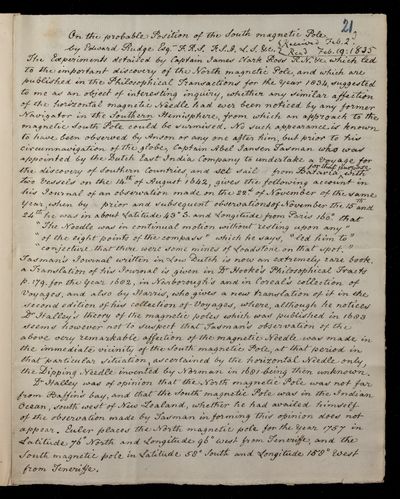 21
On the probable Position of the South magnetic Pole
By Edward Rudge Esq.r F.R.S. F.S.A. L.S. &c.
Received Feb. 2.
Read Feb. 19. 1835
The Experiments detailed by Captain James Clark Ross R.N. &c. which led
to the important discovery of the North magnetic Pole, and which are
published in the Philosophical Transactions for the Year 1834, suggested
to me as an object of interesting inquiry, whether any similar affection
of the horizontal magnetic Needle had ever been noticed by any former
Navigator in the Southern Hemisphere, from which an approach to the
magnetic South Pole could be surmised. No such appearance is known
to have been observed by Anson or any one after him; but prior to his
circumnavigation of the globe, Captain Abel Jansen Tasman who was
appointed by the Dutch East India Company to undertake a Voyage for
the discovery of Southern Countries and set sail for that purpose from Batavia, with
two Vessels on the 14th of August 1642, gives the following account in
his Journal of an observation made on the 22d of November of the same
year, when by prior and subsequent observations of November the 15th and
24th he was in about Latitude 43° S. and Longitude from Paris 160° that
"The Needle was in continual motion without resting upon any"
"of the eight points of the compass" which he says, "led him to"
"conjecture that there were some mines of Loadstone on that spot."
Tasman's Journal written in Low Dutch is now an extremely rare book.
a Translation of his Journal is given in Dr Hooke's Philosophical Tracts
p. 179. for the Year 1682, in Narborough's and in Coreal's collection of
Voyages, and also by Harris, who gives a new translation of it in the
second edition of his collection of Voyages, where, although he notices
Dr Halley's theory of the magnetic poles which was published in 1683
seems however not to suspect that Tasman's observation of the
above very remarkable affection of the magnetic Needle was made in
the immediate vicinity of the South magnetic Pole, as that period in
that particular situation, as ascertained by the horizontal Needle only,
the Dipping Needle invented by Norman in 1681 being then unknown.
Dr Halley was of opinion that the North magnetic Pole was not far
from Baffin's bay, and that the South magnetic Pole was in the Indian
Ocean, South west of New Zealand, whether he had availed himself
of the observation made by Tasman in forming this opinion does not
appear. Euler places the North magnetic pole for the Year 1757 in
Latitude 76° North and Longitude 96° West from Teneriffe, and the
South magnetic pole in Latitude 58° South and Longitude 158° West
from Teneriffe.